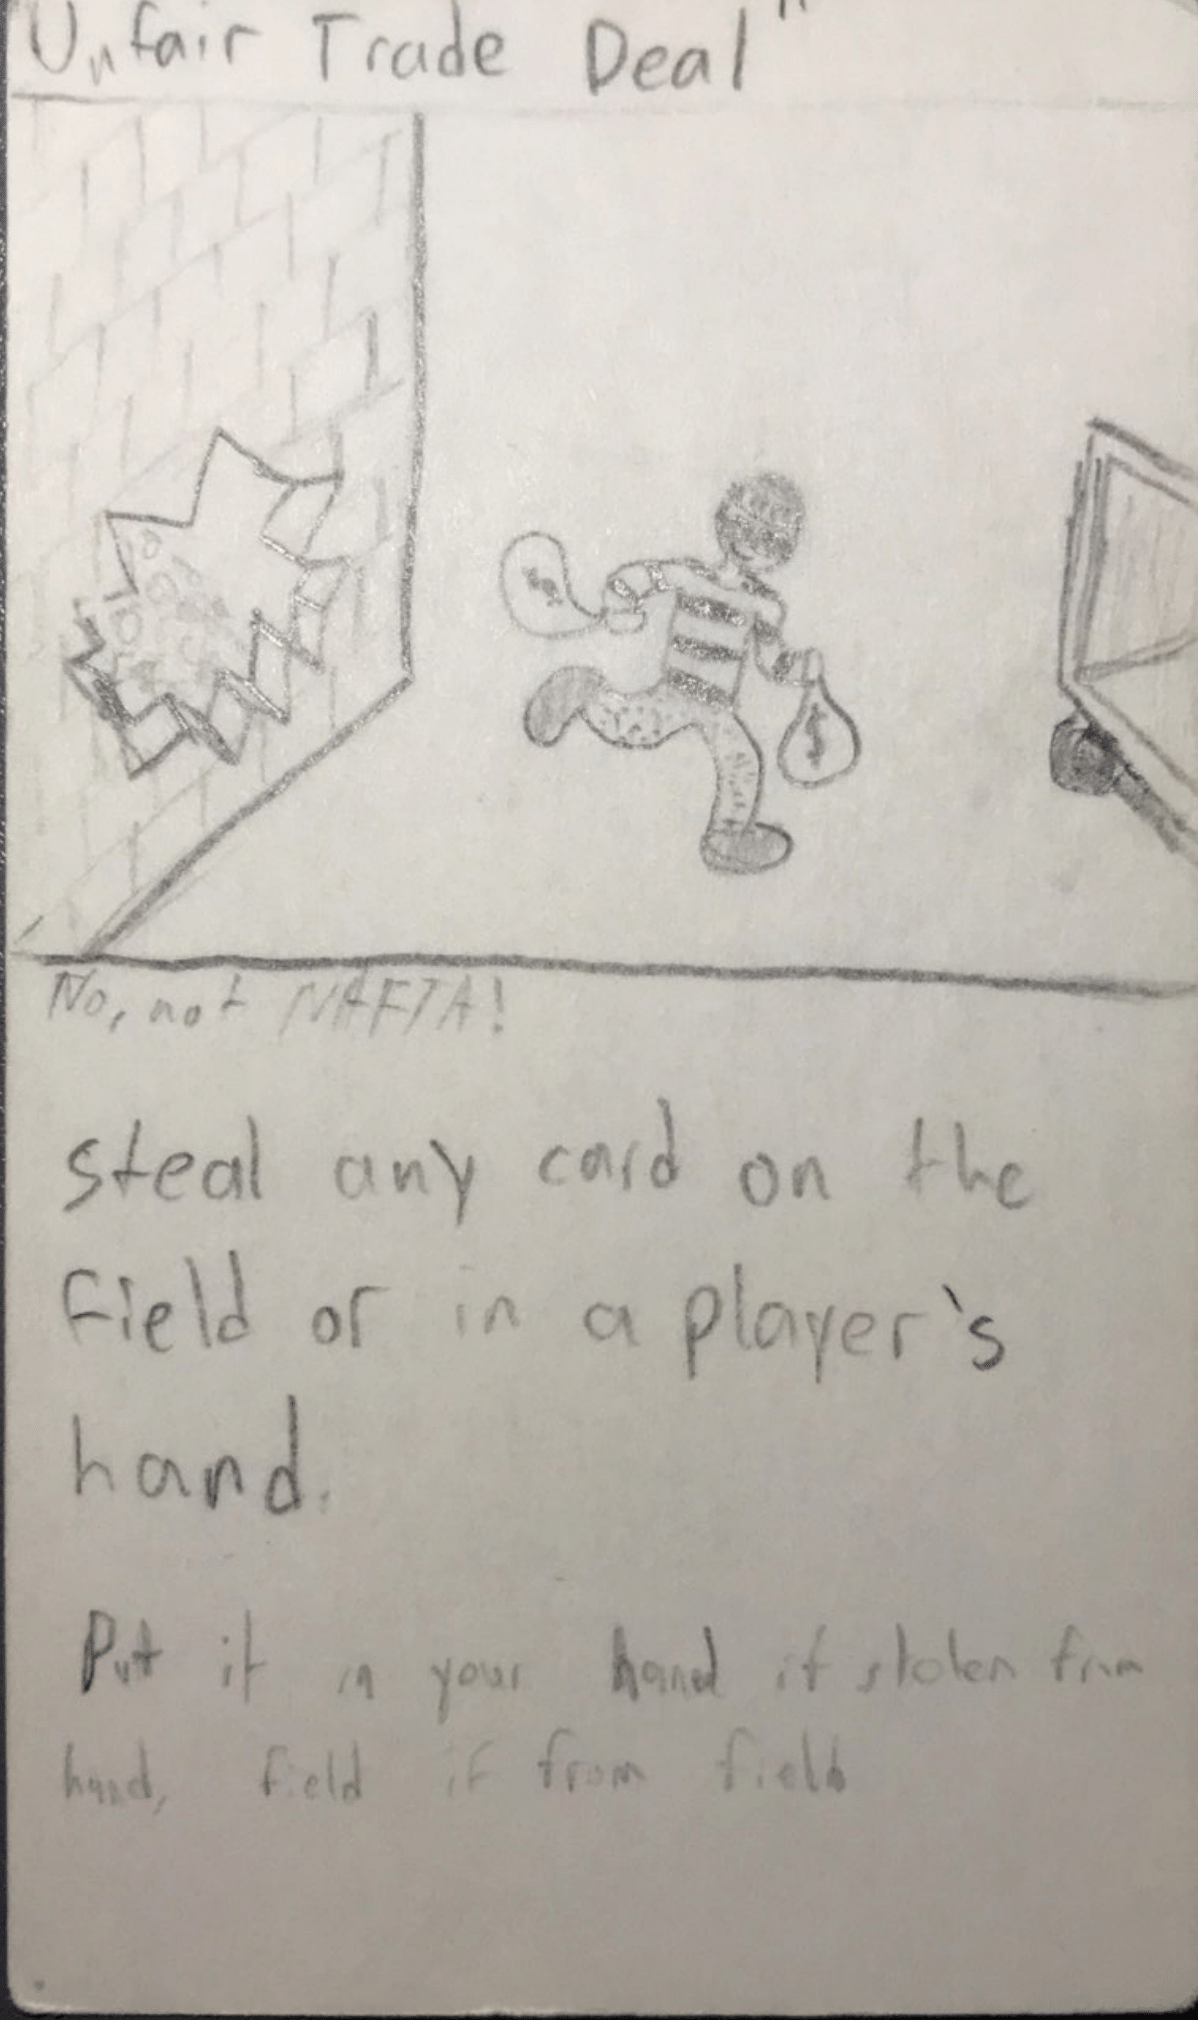 "Unfair Trade Deal"
No, not NAFTA!
$
$
steal any card on the
field or in a player's
hand.
Put it in your hand if stolen from
hand, field if from field